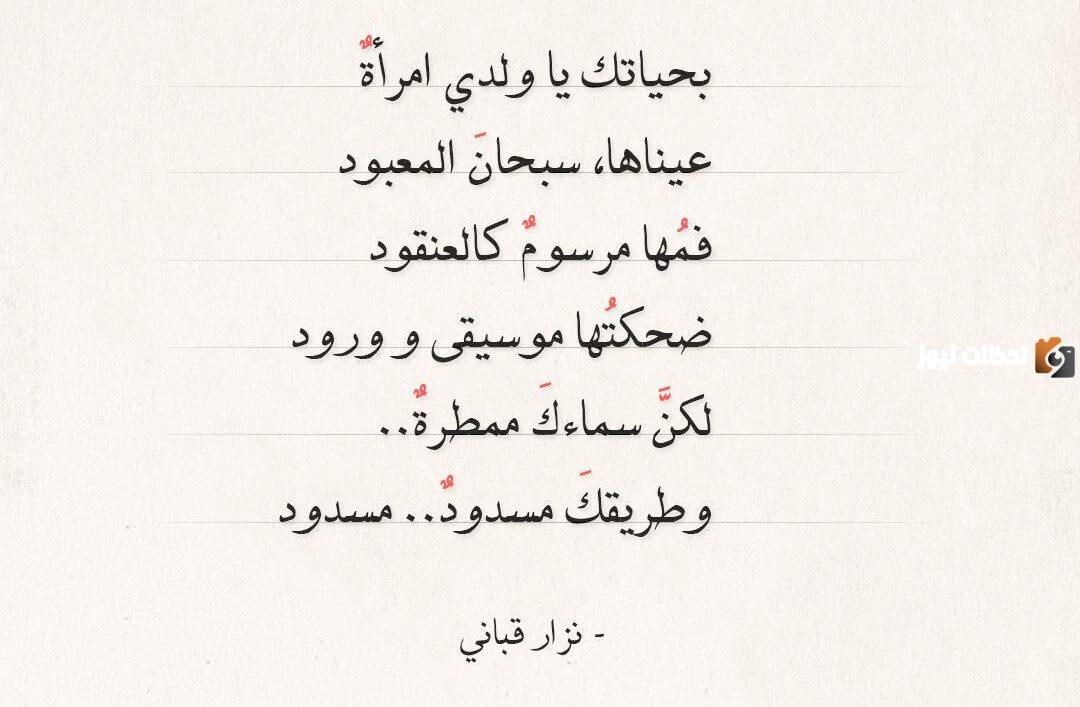 بحياتك يا ولدي امرأةٌ
عيناها، سبحانَ المعبود
فمُها مرسومٌ كالعنقود
ضحكتُها موسيقى و ورود
لكنَّ سماءكَ ممطرةٌ..
وطريقكَ مسدودٌ.. مسدود
- نزار قباني
لحظات نيوز